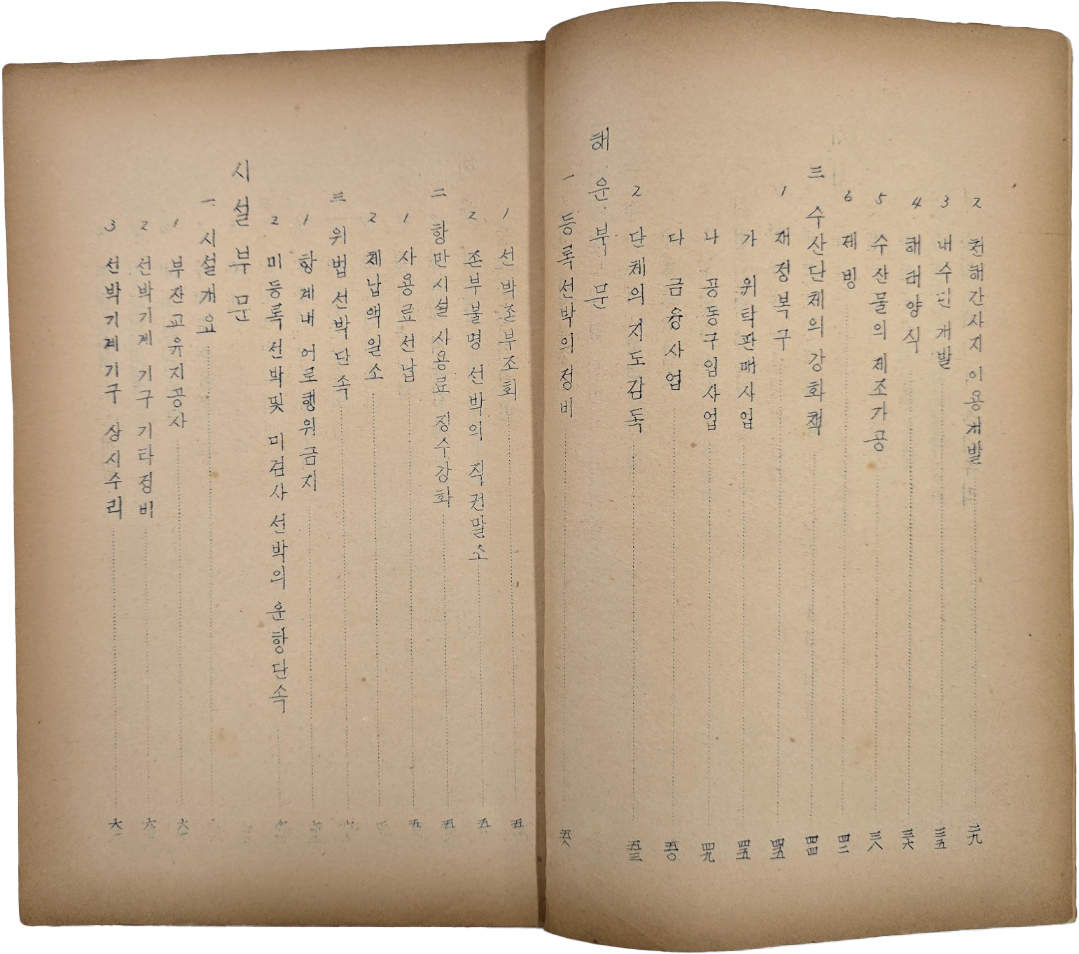 2 천해간사지 이용개발 二九
3 내수면 개발 三五
4 해태양식 三六
5 수산물의 제조가공 三八
6 제빙 四二
三 수산단체의 강화책 四四
1 재정복구 四五
가 위탁판매사업 四五
나 공동구입사업 四九
다 금융사업 五〇
2 단체의 지도감독 五三
해운부문
一 등록선박의 정비 五八
1 선박존부조회 五
2 존부불명 선박의 직권말소 五
二 항만시설 사용료 징수강화 五
1 사용료선납 五
2 체납액일소
三 위법선박단속
1 항계내 어로행위금지
2 미등록선박및 미검사 선박의 운항단속
시설부문
一 시설개요
1 부잔교유지공사 六
2 선박기계 기구 기타정비 六
3 선박기계기구 상시수리 六